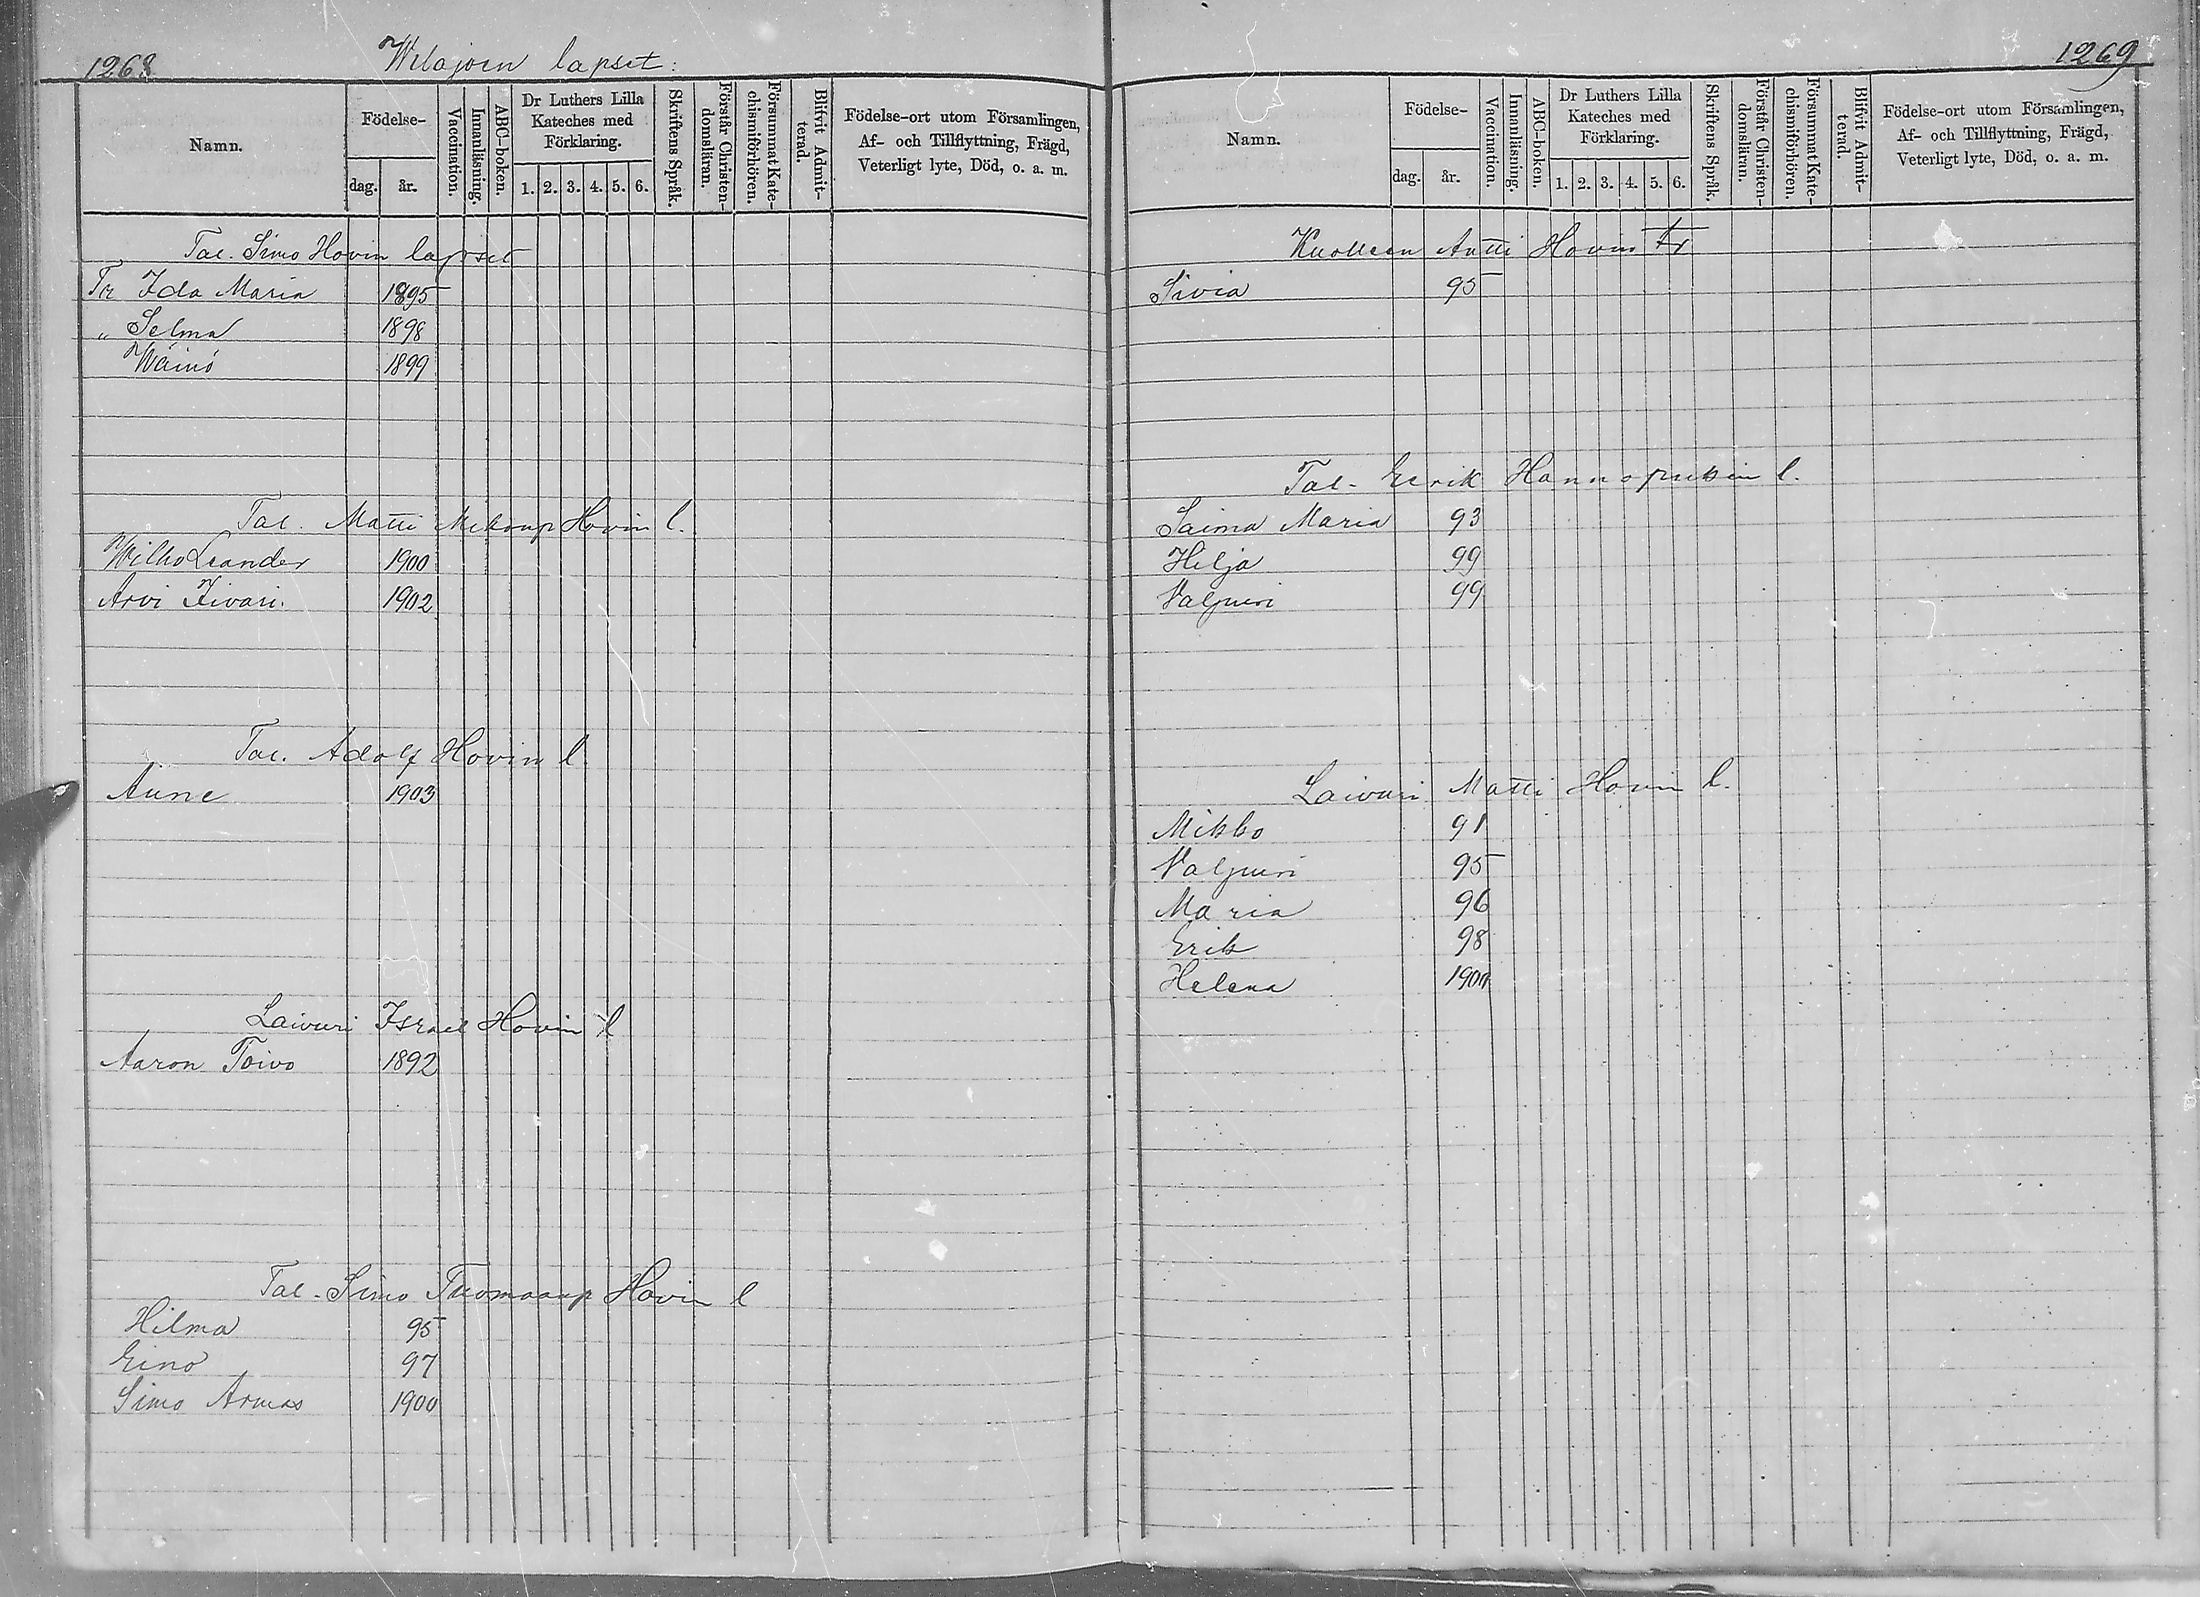 1268
Wilajoen lapset:
Namn.
Födelse-
dag.
år.
Vaccination.
Innanläsning.
ABC-boken.
Dr Luthers Lilla
Kateches med
Förklaring.
1. 2. 3. 4. 5. 6.
Skriftens Språk.
Förstår Christen-
domsläran.
Försummat Kate-
chismiförhören.
Blifvit Admit-
terad.
Födelse-ort utom Församlingen,
Af- och Tillflyttning, Frägd,
Veterligt lyte, Död, o. a. m.
Tal. Simo Hovin lapset
Tr Ida Maria 1895
„ Selma 1898
Wäinö 1899
Tal. Matti Mikonp Hovin l.
Wilho Leander 1900
Arvi Iivari. 1902
Tal. Adolf Hovin l.
Aune 1903
Laivuri Israel Hovin l
Aaron Toivo 1892
Tal. Simo Tuomaanp Hovin l
Hilma 95
Eino 97
Simo Armas 1900
1269
Namn.
Födelse-
dag.
år.
Vaccination.
Innanläsning.
ABC-boken.
Dr Luthers Lilla
Kateches med
Förklaring.
1. 2. 3. 4. 5. 6.
Skriftens Språk.
Förstår Christen-
domsläran.
Försummat Kate-
chismiförhören.
Blifvit Admit-
terad.
Födelse-ort utom Församlingen,
Af- och Tillflyttning, Frägd,
Veterligt lyte, Död, o. a. m.
Kuolleen Antti Hovin tr
Siviä 95
Tal. Eerik Hannopukin l.
Saima Maria 93
Hilja 99
Valpuri 99
Laivuri Matti Hovin l.
Mikko 91
Valpuri 95
Maria 96
Erik 98
Helena 1900